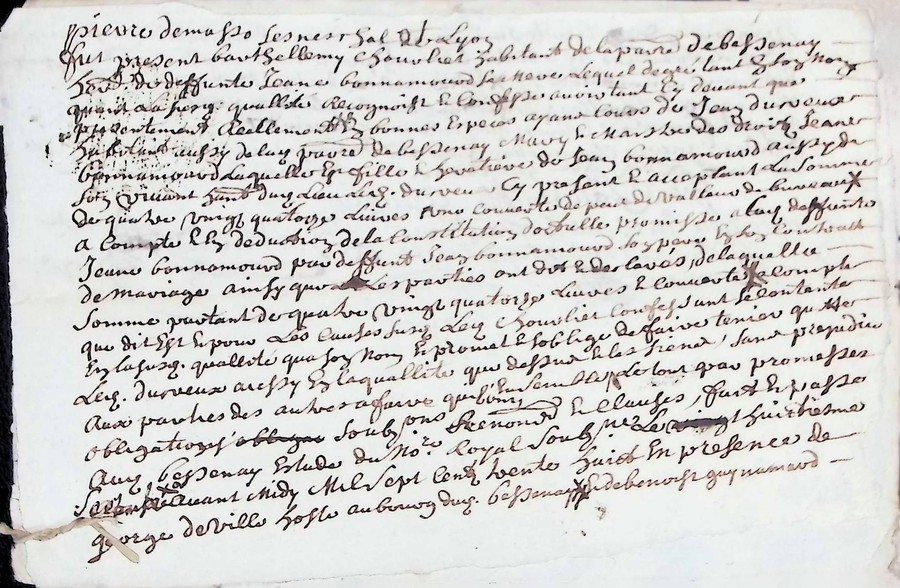 pierre demasso seneschal de Lyon
fut present barthellemy Chouvliet habitant de la parr.e de bessenay
herit. de deffunte Jeane bonnamourd sa mere Lequel de gré tant en son Nom
quen La susd. quallité Recongnoist et Confesse avoir tant Cy devant que
presentement Reellement en bonnes Especes ayant Cours de Jean durveux
habitant aussy de lad. parr.e de bessenay Mary et Maistre des droits Jeane
bonnamourd Laquelle Est fille et heretiere de Jean bonnamourd aussy de
son vivant hant dud. Lieu Led. durveux Cy present et acceptant La somme
de quatre vingt quatorze Livres
a Compte et En deduction de la Constitution dotalle promisse a lad. deffunte
Jeane bonnamourd par deffunt Jean bonnamourd son pere En son Contrait
de Mariage ainsy que Les parties ont dit et declaré, de laquelle
somme partant de quatre vingt quatorze Livres et Couverte a Compte
que dit Est Et pour Les Causes susd. Led. Chouvliet Confessant se Contante
En la susd. quallité qua son Nom En promet et soblige de faire tenir quitte
Led. durveux aussy En la quallité que dessus et les siens, sans prejudice
Aux parties des autres affaire quils ont Ensemble, Le tout par promesses
obligations soubz ons Renon.s et Clauses, fait et passé
Aud. bessenay Estude du No.re Royal soubz.né Le vingt huitiesme
avant Midy Mil sept Cent trente huict En presence de
george de ville hoste au bourg dud. bessenay et de benoist guynamard